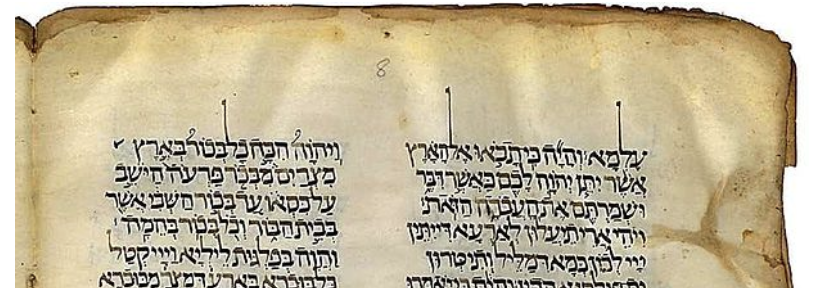 8
עלמא׃ והיה כי תבאו אל הארץ
אשר יתן יהוה לכם כאשר דבר
ושמרתם את העבדה הזאת׃
ויהי ארי תעלון לארעא דייתין
ייי לכון כמא דמליל ותיטרון
ויהוה הכה כל בכור בארץ
מצרים מבכר פרעה הישב
על כסאו עד בכור השבי אשר
בבית הבור וכל בכור בהמה׃
והוה בפלגות ליליא וייי קטל
כל בוכרא בארעא